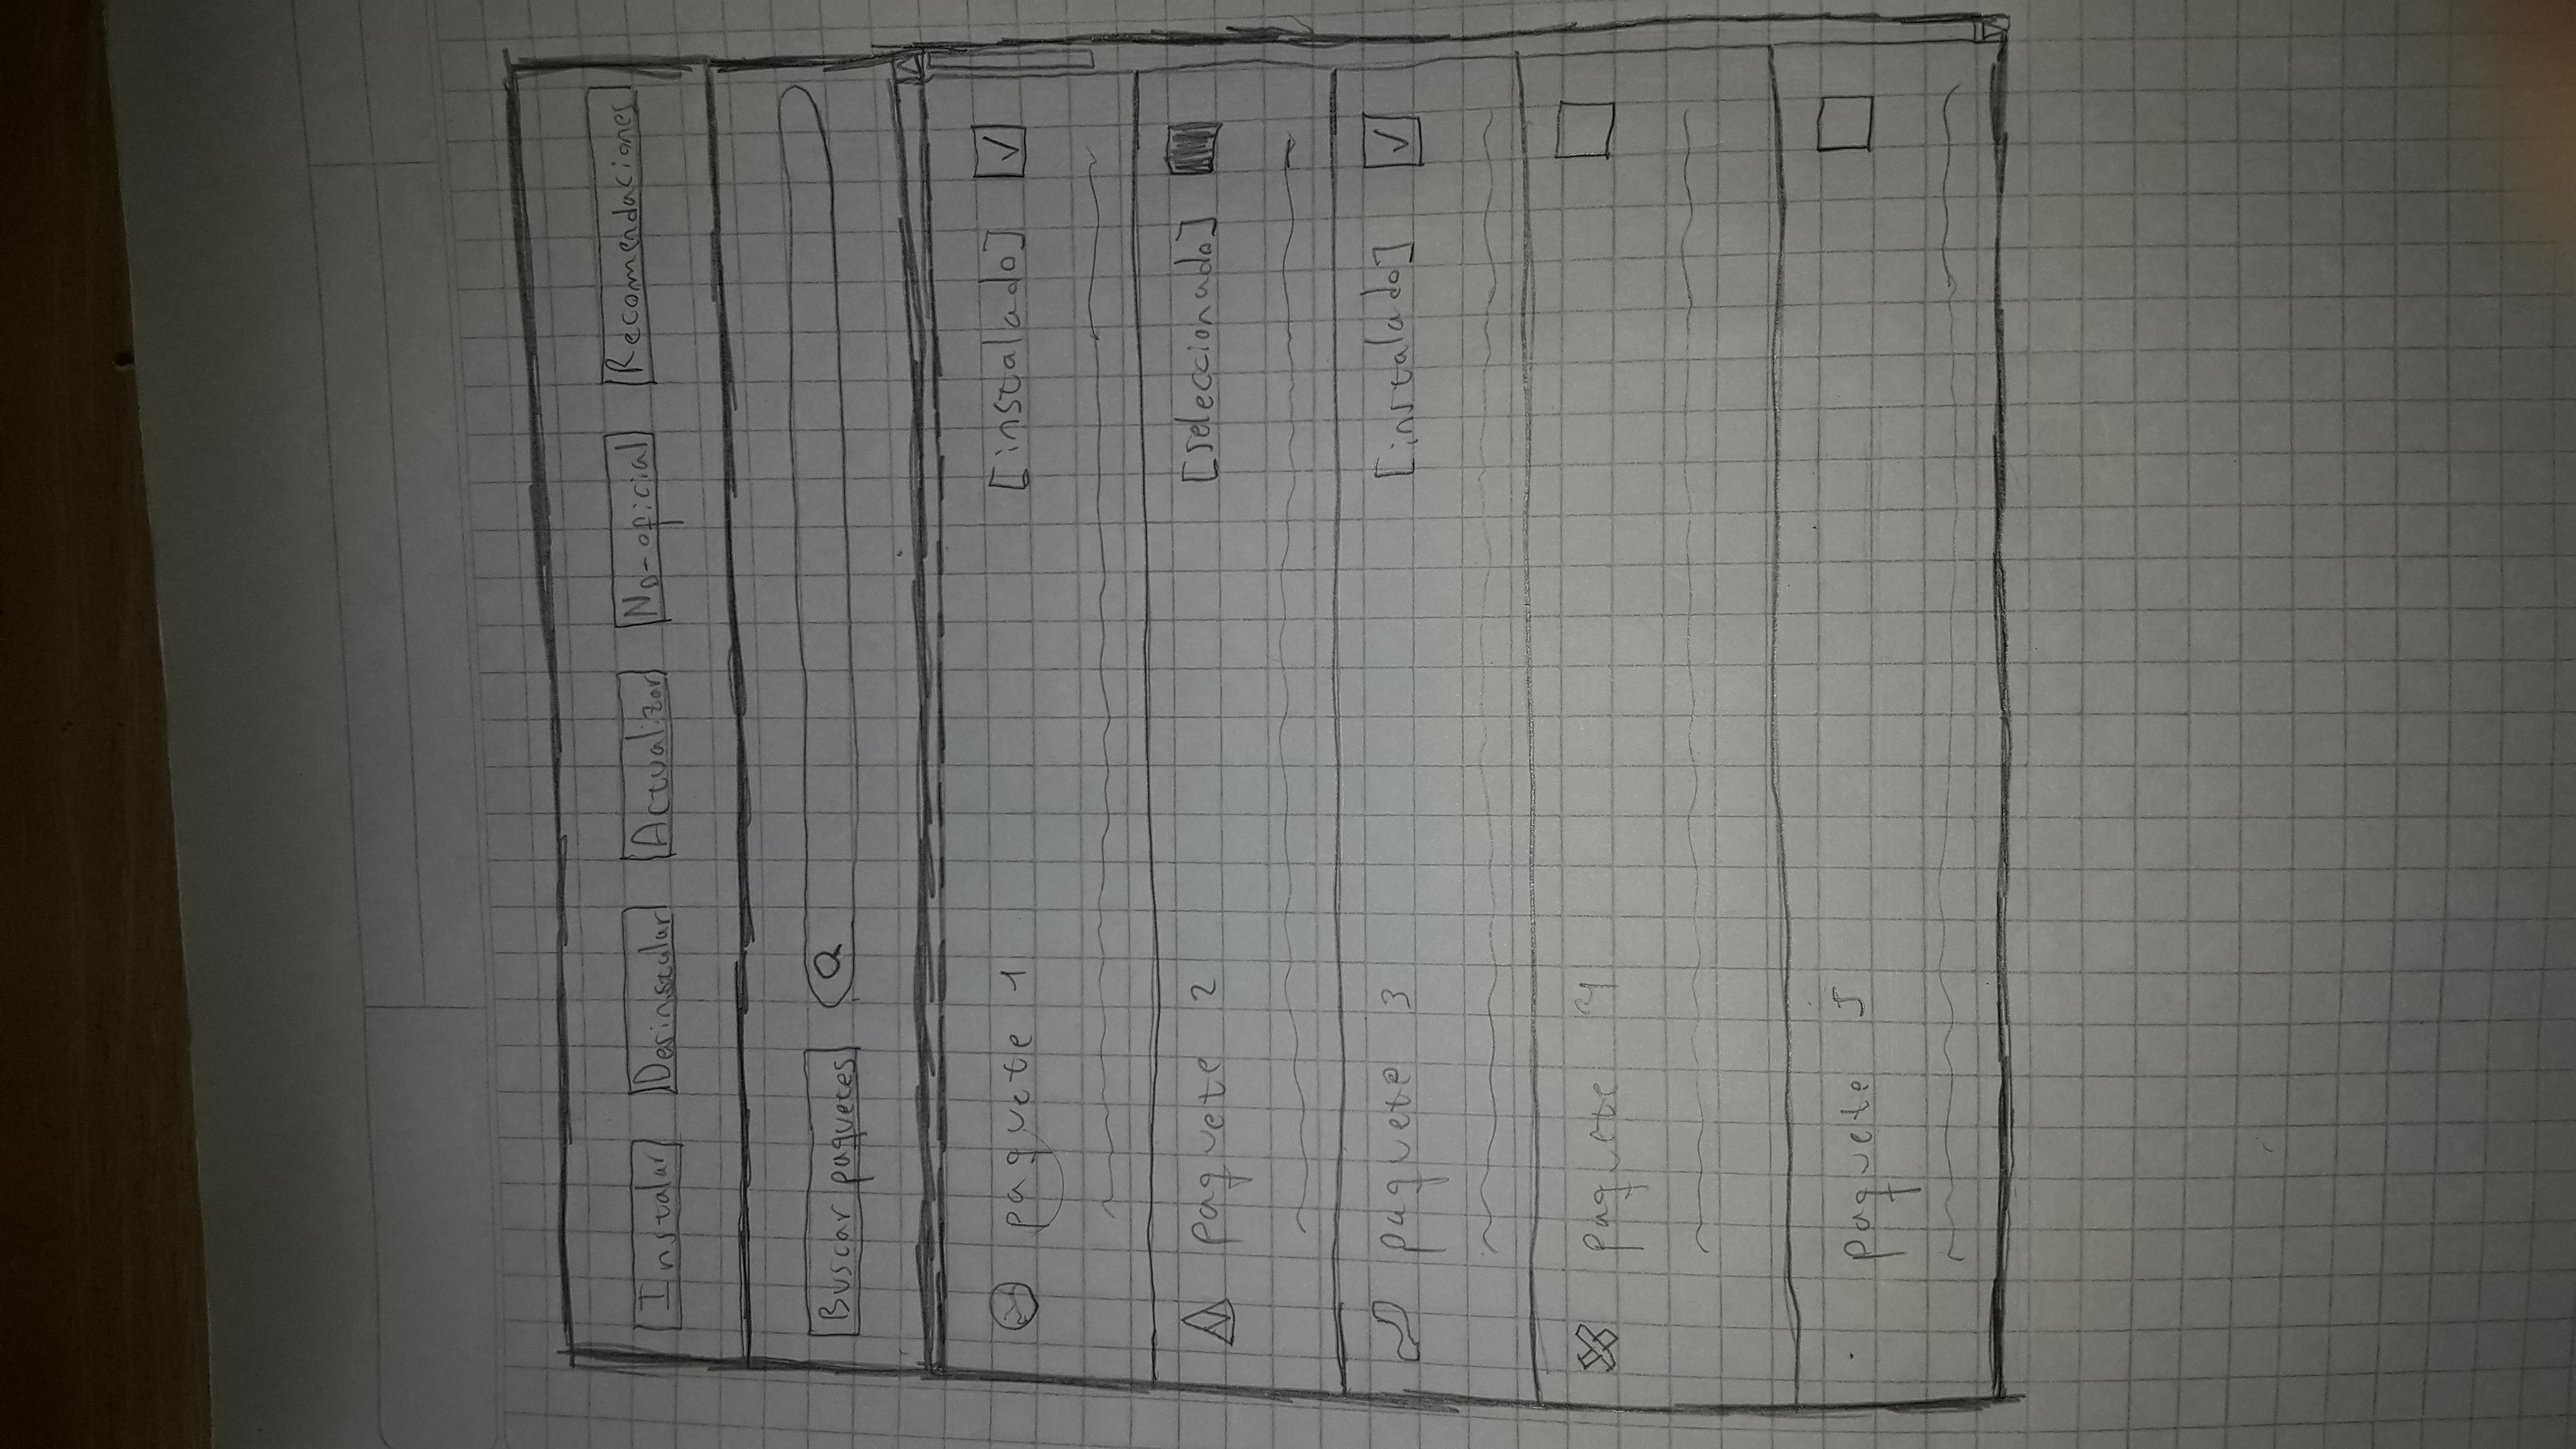 Instalar Desinstalar Actualizar No-oficial Recomendaciones
Buscar paquetes
paquete 1 [instalado]
paquete 2 [seleccionado]
paquete 3 [instalado]
paquete 4
paquete 5